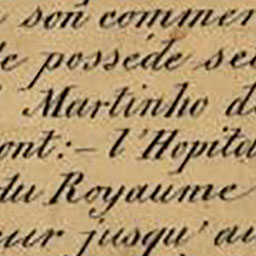 son commer
possède se
Martinho d
ont:— l'Hopita
du Royaume
eur jusqu'au